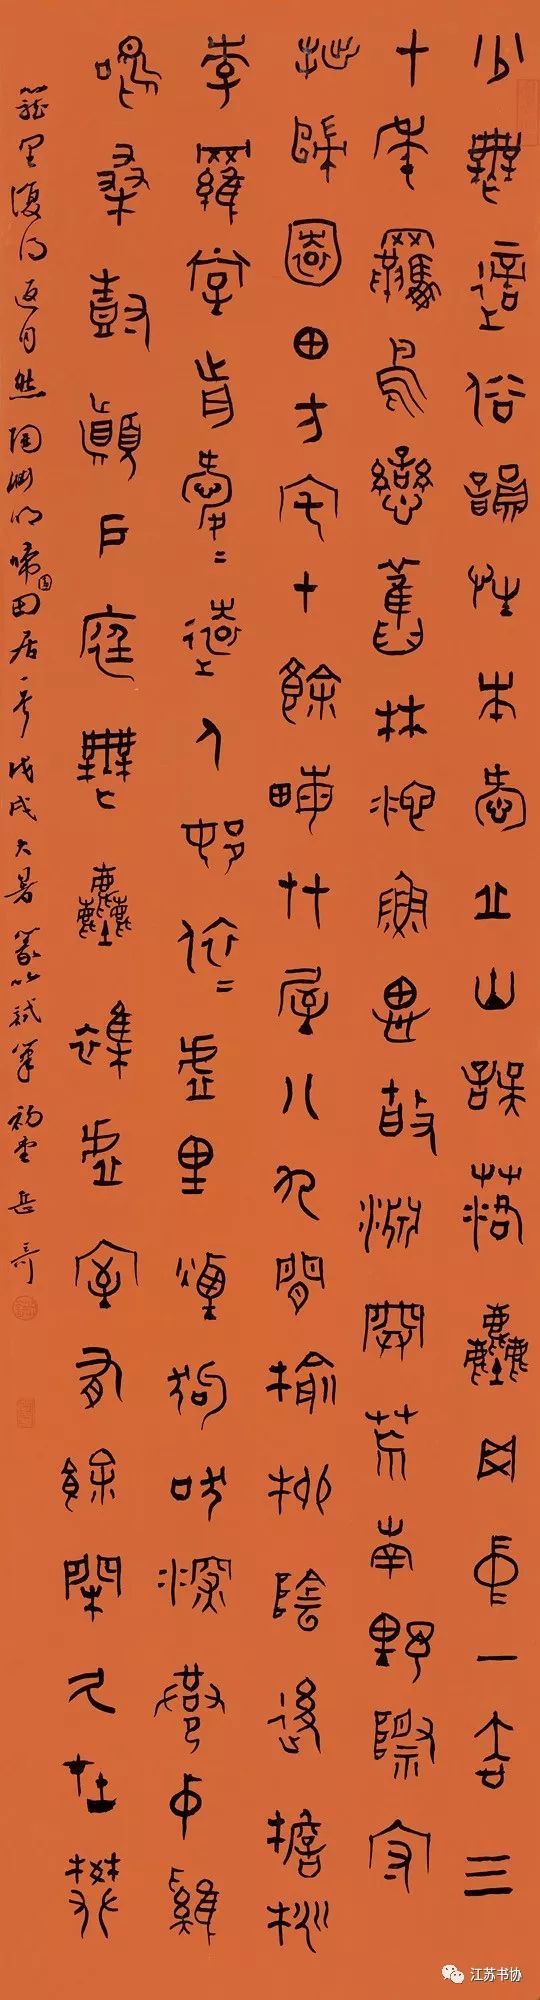 少無適俗韻性本愛丘山誤落塵网中一去三
十年羈鳥戀舊林池魚思故淵開荒南野際守
拙歸園田方宅十餘畝草屋八九間榆柳陰後檐桃
李羅堂前曖〻遠人邨依〻虛里煙狗吠深巷中雞
鳴桑樹顛戶庭無塵雜虛室有餘閒久在樊
籠里復得返自然 陶淵明歸園田居一首 戊戌大暑 篆以試筆 岳奇
江苏书协